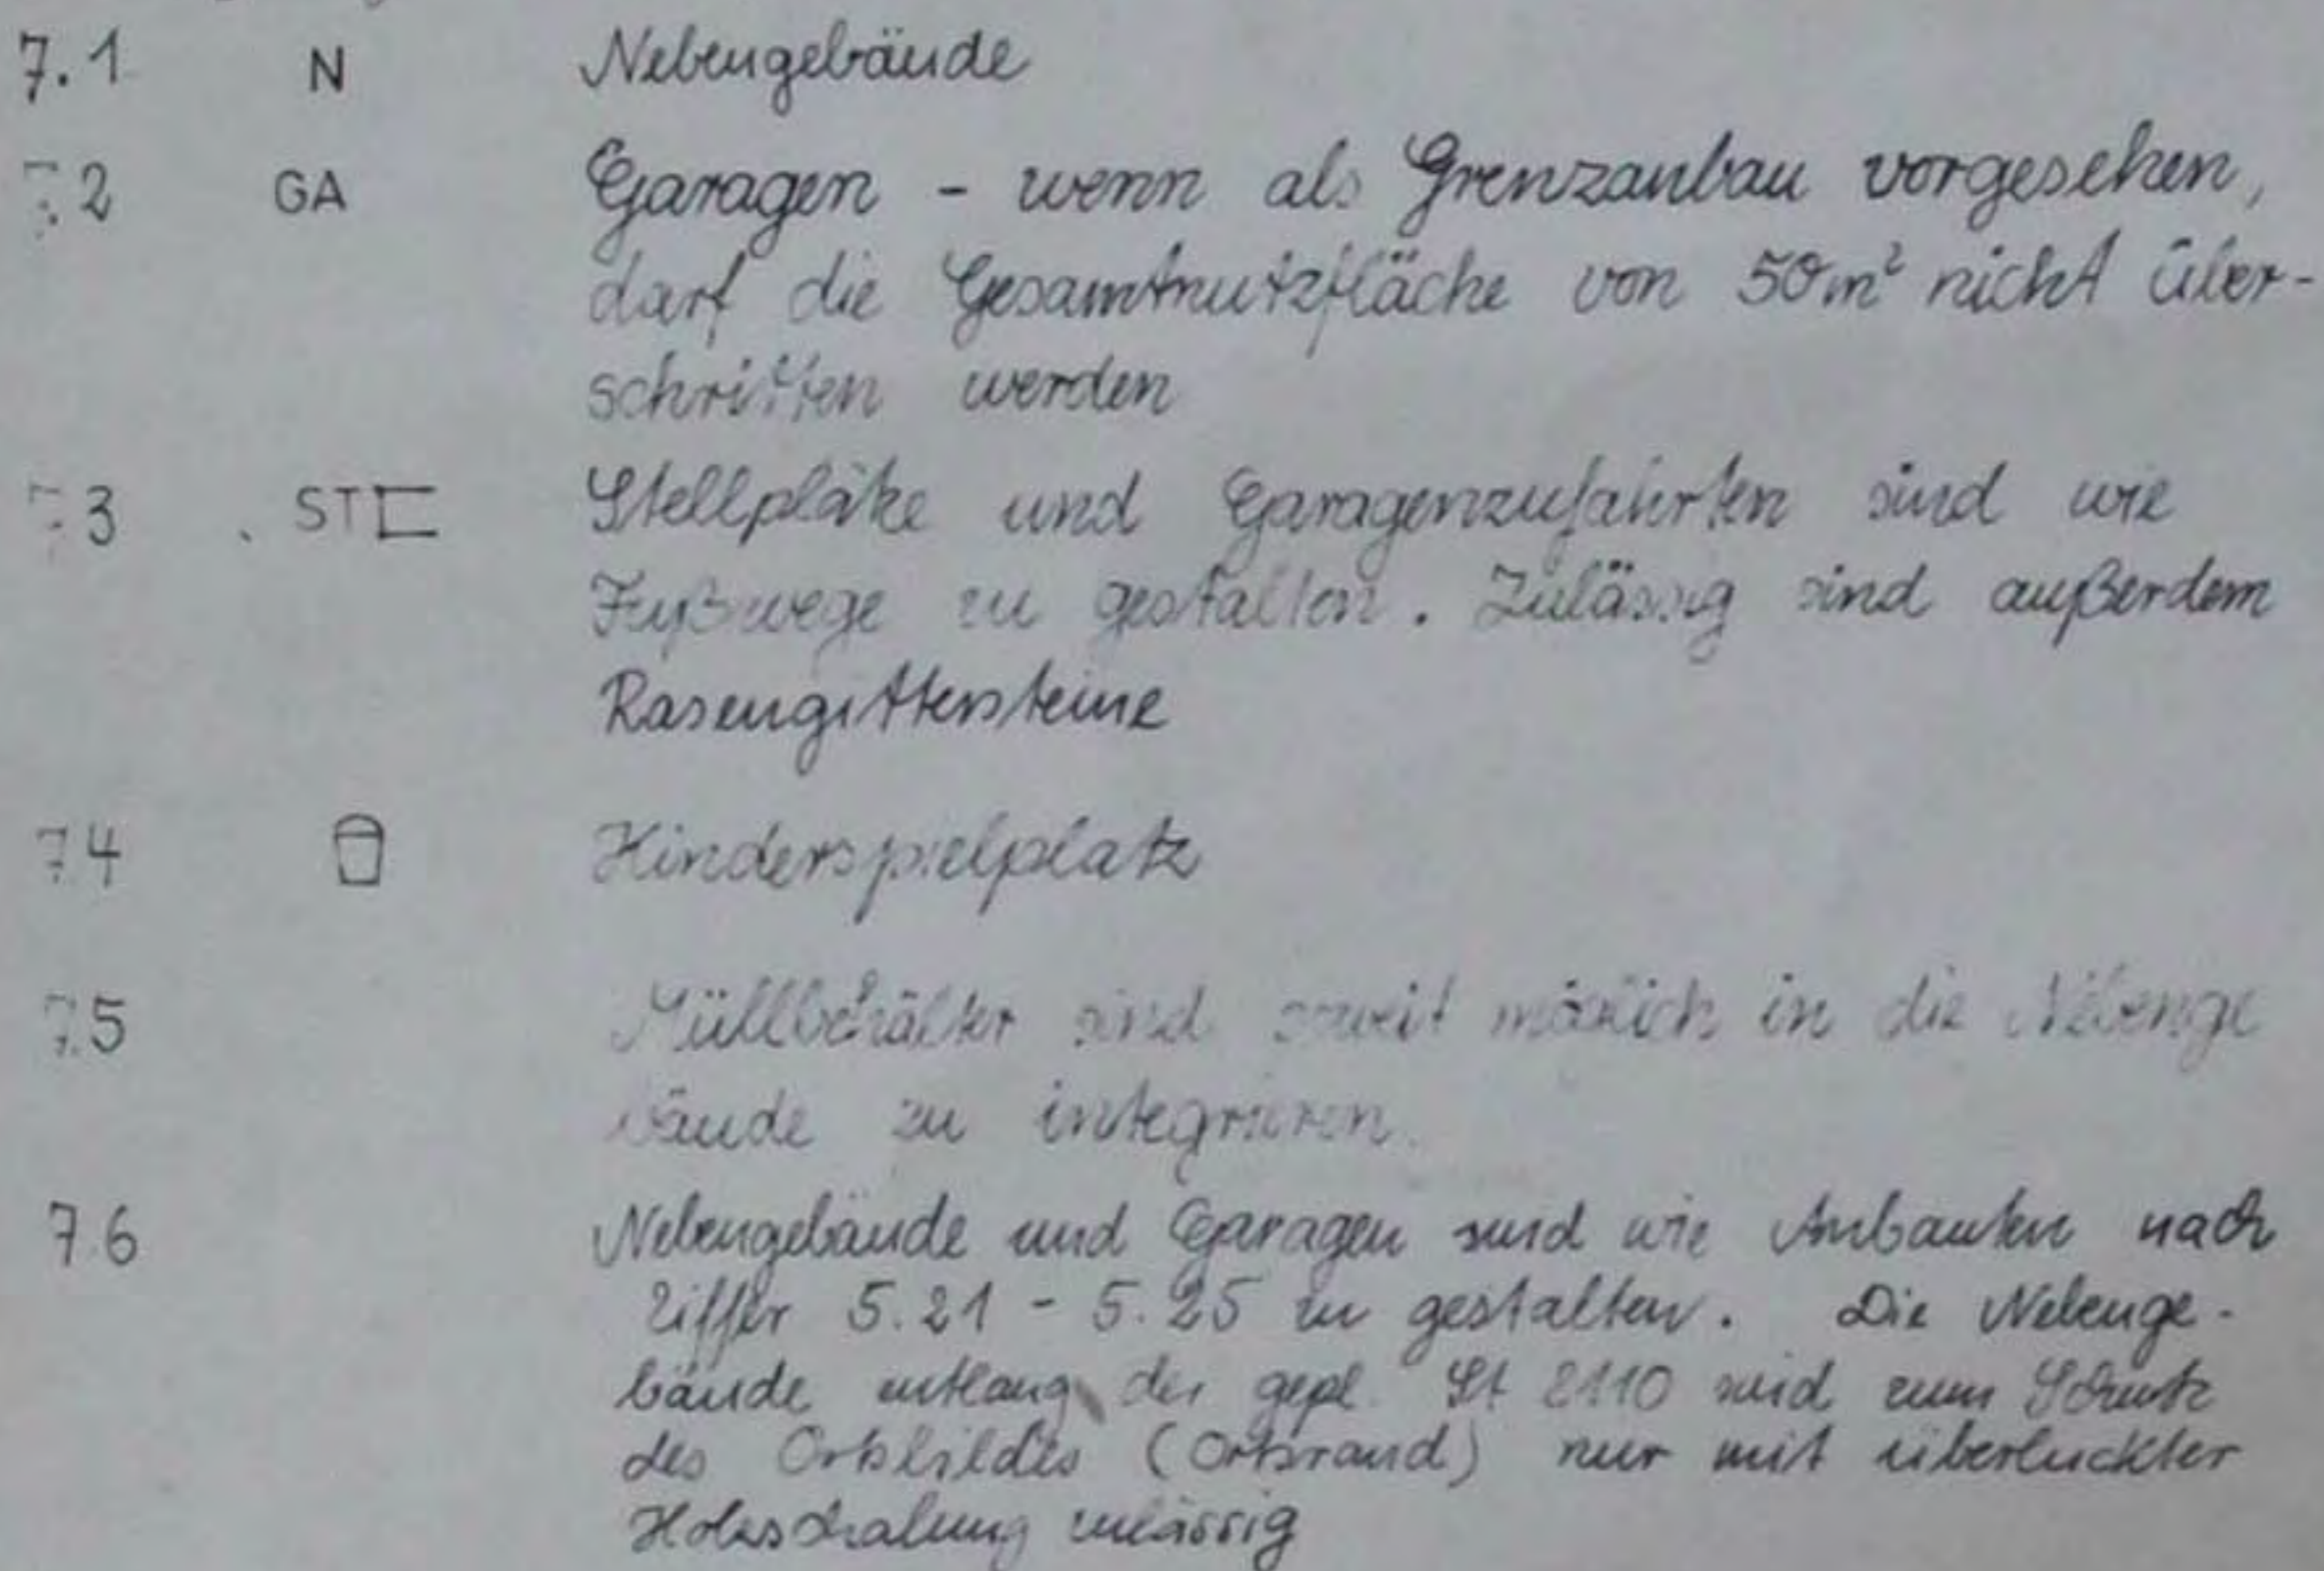 7.1 N Nebengebäude
7.2 GA Garagen - wenn als Grenzanbau vorgesehen,
darf die Gesamtnutzfläche von 50m² nicht über-
schritten werden
7.3 ST Stellplätze und Garagenzufahrten sind wie
Fußwege zu gestalten. Zulässig sind außerdem
Rasengittersteine
7.4 Kinderspielplatz
7.5 Müllbehälter sind soweit möglich in die Nebenge
bäude zu integrieren.
7.6 Nebengebäude und Garagen sind wie Anbauten nach
Ziffer 5.21 - 5.25 zu gestalten. Die Nebenge-
bäude entlang der gepl. St 2110 sind zum Schutz
des Ortsbildes (Ortsrand) nur mit überluckter
Holzschalung zulässig